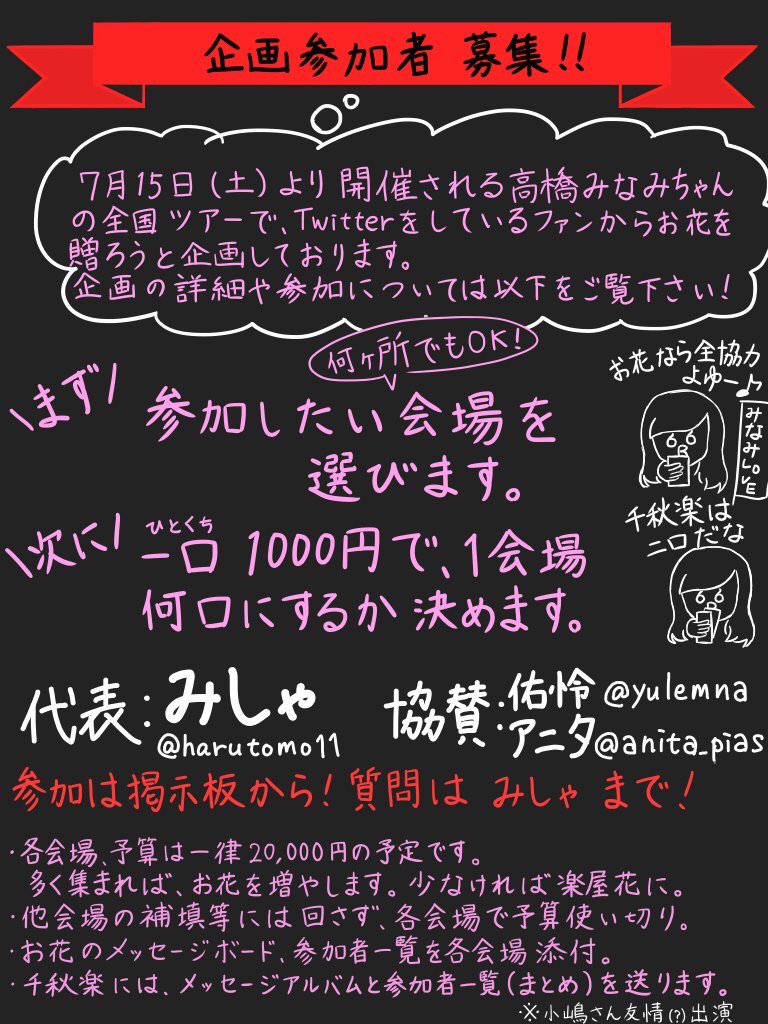 企画参加者 募集!!
7月15日(土)より開催される高橋みなみちゃん
の全国ツアーで、Twitterをしているファンからお花を
贈ろうと企画しております。
企画の詳細や参加については以下をご覧下さい!
何ヶ所でもOK!
\まず/
参加したい会場を
選びます。
お花なら全協力
よゆー♪
みなみLOVE
千秋楽は
二口だな
\次に/
ひとくち
一口 1000円で、1会場
何口にするか決めます。
代表:みしゃ
@harutomo11
協賛:佑怜 @yulemna
:アニタ@anita_pias
参加は掲示板から!質問は みしゃ まで!
・各会場、予算は一律20,000円の予定です。
多く集まれば、お花を増やします。少なければ楽屋花に。
・他会場の補填等には回さず、各会場で予算使い切り。
・お花のメッセージボード、参加者一覧を各会場添付。
・千秋楽には、メッセージアルバムと参加者一覧(まとめ)を送ります。
※小嶋さん友情(?)出演